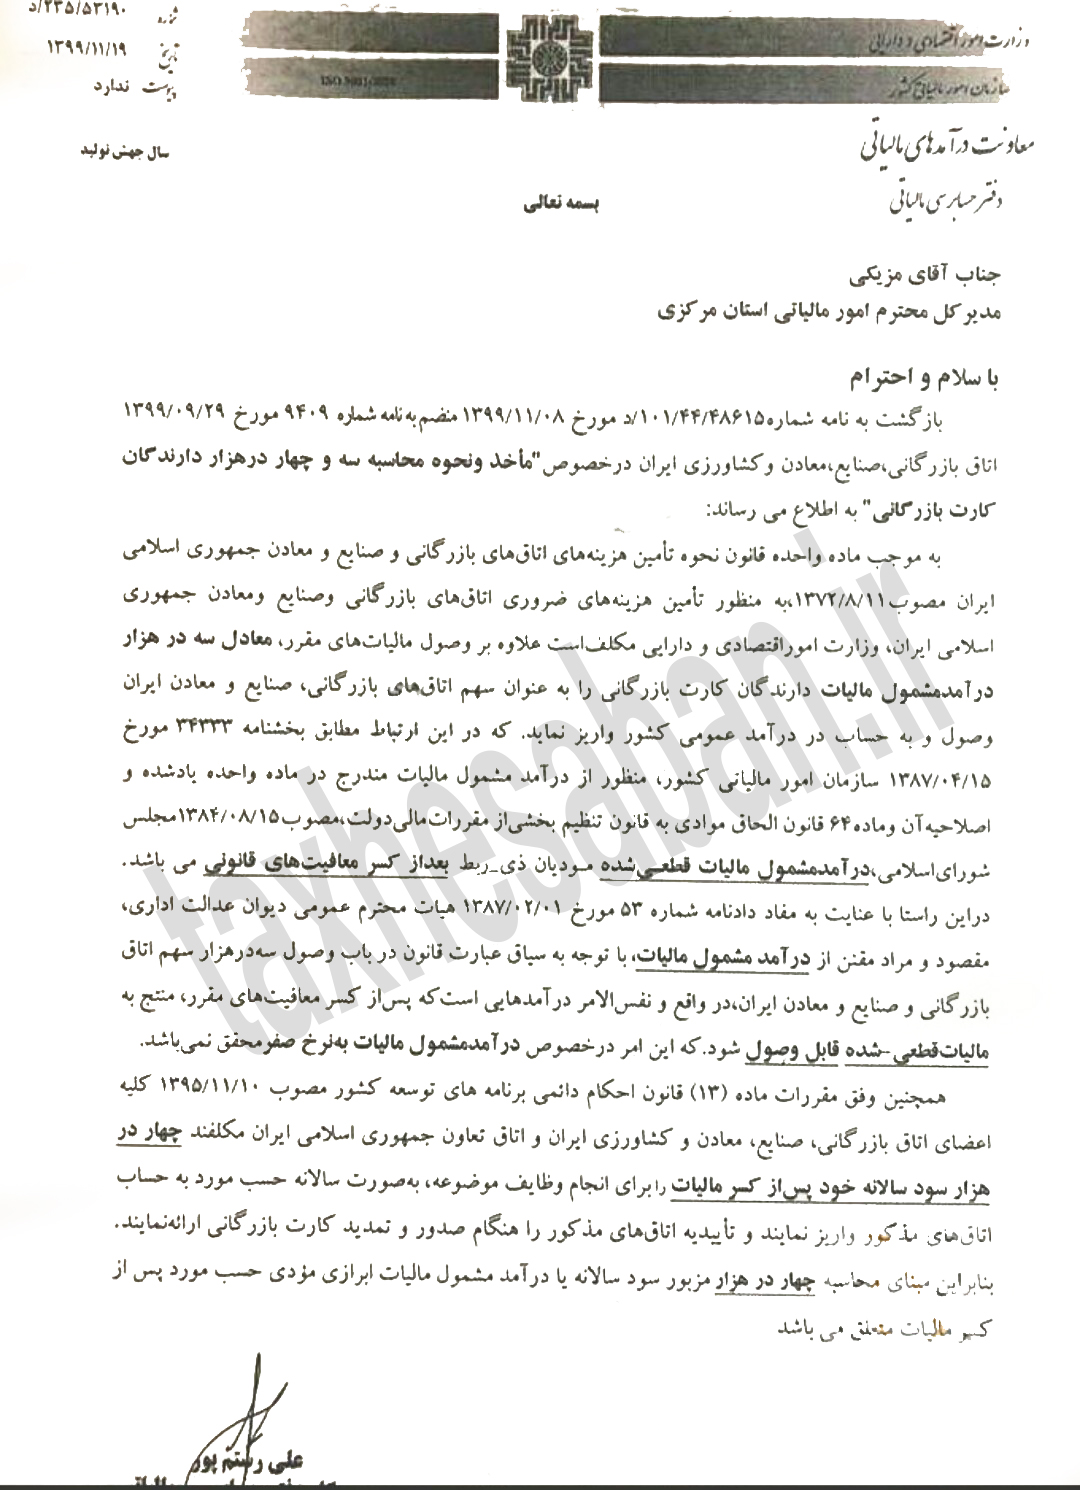 شماره ۲۳۵/۵۳۱۹۰/د
تاریخ ۱۳۹۹/۱۱/۱۹
پیوست ندارد
سال جهش تولید
وزارت امور اقتصادی و دارایی
سازمان امور مالیاتی کشور
معاونت درآمدهای مالیاتی
دفتر حسابرسی مالیاتی
بسمه تعالی
جناب آقای مزیکی
مدیرکل محترم امور مالیاتی استان مرکزی
با سلام و احترام
بازگشت به نامه شماره۱۰۱/۴۴/۴۸۶۱۵/د مورخ ۱۳۹۹/۱۱/۰۸ منضم به نامه شماره ۹۴۰۹ مورخ ۱۳۹۹/۰۹/۲۹
اتاق بازرگانی،صنایع،معادن وکشاورزی ایران درخصوص"مأخذ ونحوه محاسبه سه و چهار درهزار دارندگان
کارت بازرگانی" به اطلاع می رساند:
به موجب ماده واحده قانون نحوه تأمین هزینه‌های اتاق‌های بازرگانی و صنایع و معادن جمهوری اسلامی
ایران مصوب۱۳۷۲/۸/۱۱،به منظور تأمین هزینه‌های ضروری اتاق‌های بازرگانی وصنایع ومعادن جمهوری
اسلامی ایران، وزارت اموراقتصادی و دارایی مکلف‌است علاوه بر وصول مالیات‌های مقرر، معادل سه در هزار
درآمدمشمول مالیات دارندگان کارت بازرگانی را به عنوان سهم اتاق‌های بازرگانی، صنایع و معادن ایران
وصول و به حساب در درآمد عمومی کشور واریز نماید. که در این ارتباط مطابق بخشنامه ۳۴۳۳۳ مورخ
۱۳۸۷/۰۴/۱۵ سازمان امور مالیاتی کشور، منظور از درآمد مشمول مالیات مندرج در ماده واحده یادشده و
اصلاحیه‌آن وماده۶۴ قانون الحاق موادی به قانون تنظیم بخشی‌از مقررات‌مالی‌دولت،مصوب۱۳۸۴/۰۸/۱۵مجلس
شورای‌اسلامی،درآمدمشمول مالیات قطعی‌شده مودیان ذی_ربط بعداز کسر معافیت‌های قانونی می باشد.
دراین راستا با عنایت به مفاد دادنامه شماره ۵۳ مورخ ۱۳۸۷/۰۲/۰۱ هیات محترم عمومی دیوان عدالت اداری،
مقصود و مراد مقنن از درآمد مشمول مالیات، با توجه به سیاق عبارت قانون در باب وصول سه‌درهزار سهم اتاق
بازرگانی و صنایع و معادن ایران،در واقع و نفس‌الامر درآمدهایی است‌که پس‌از کسر معافیت‌های مقرر، منتج به
مالیات‌قطعی-شده قابل وصول شود.که این امر درخصوص درآمدمشمول مالیات به‌نرخ صفرمحقق نمی‌باشد.
همچنین وفق مقررات ماده (۱۳) قانون احکام دائمی برنامه های توسعه کشور مصوب ۱۳۹۵/۱۱/۱۰ کلیه
اعضای اتاق بازرگانی، صنایع، معادن و کشاورزی ایران و اتاق تعاون جمهوری اسلامی ایران مکلفند چهار در
هزار سود سالانه خود پس‌از کسر مالیات رابرای انجام وظایف موضوعه، به‌صورت سالانه حسب مورد به حساب
اتاق‌های مذکور واریز نمایند و تأییدیه اتاق‌های مذکور را هنگام صدور و تمدید کارت بازرگانی ارائه‌نمایند.
بنابراین مبنای محاسبه چهار در هزار مزبور سود سالانه یا درآمد مشمول مالیات ابرازی مؤدی حسب مورد پس از
کسر مالیات متعلق می باشد
علی رستم پور
taxhesaban.ir